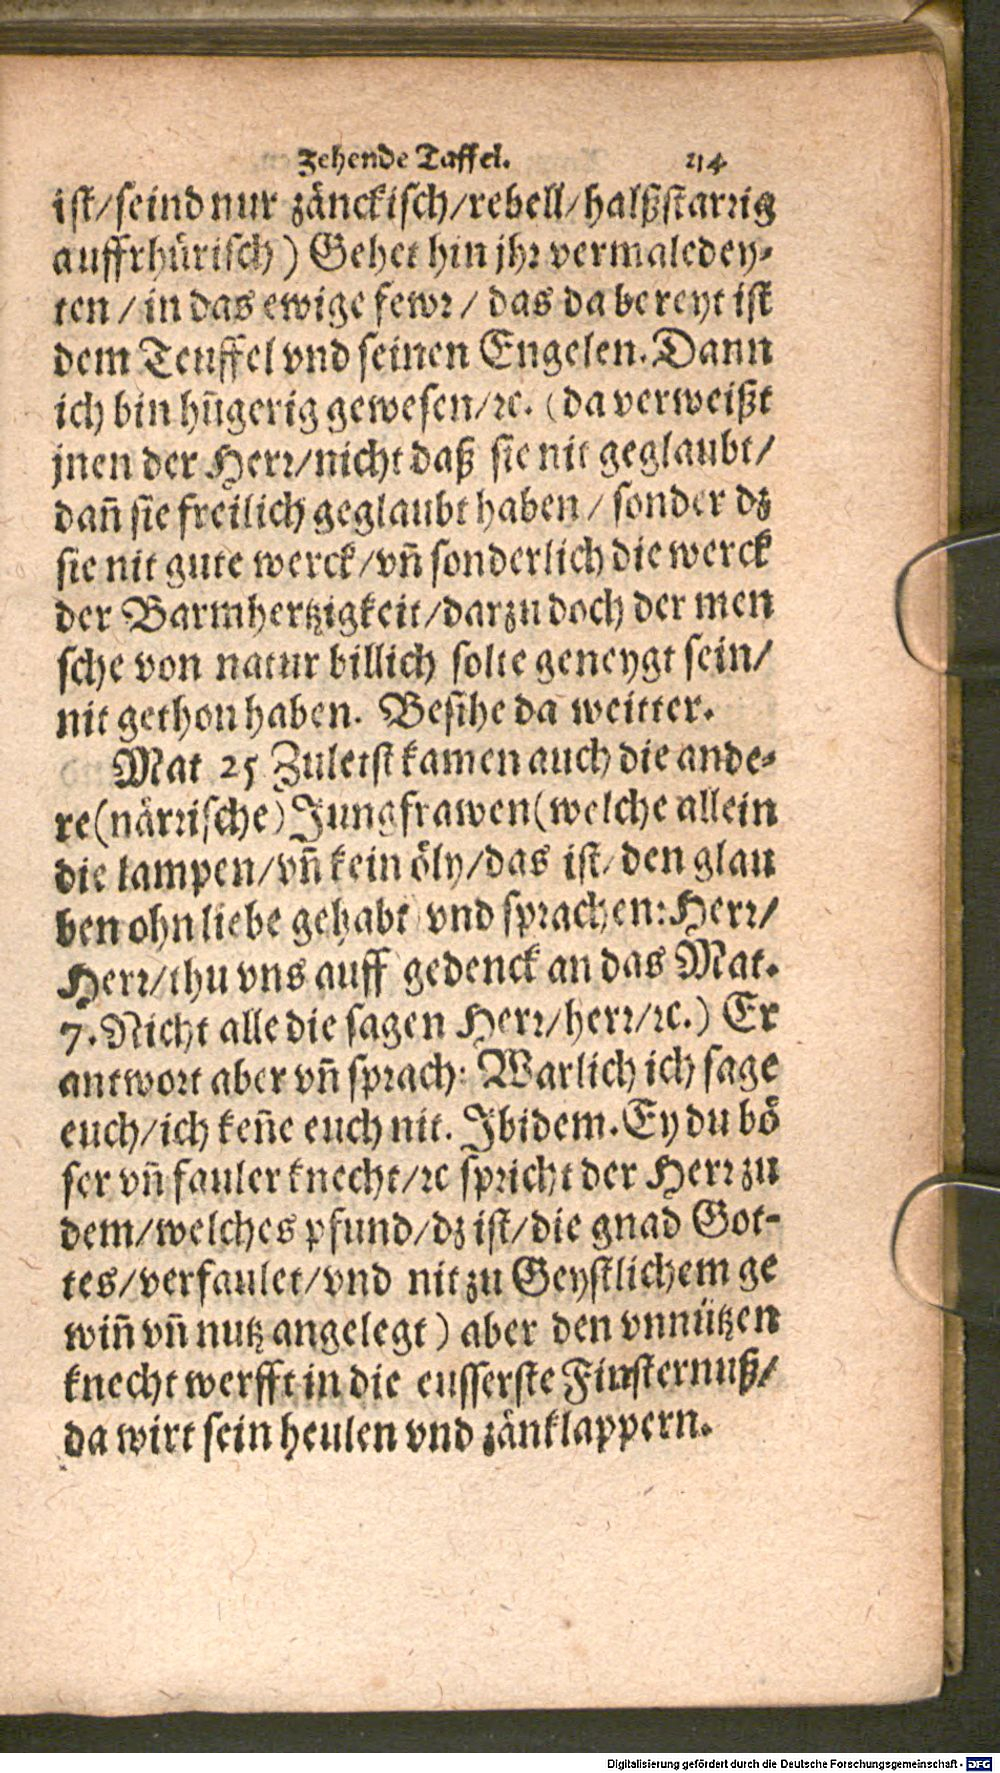 Zehende Taffel. 214
ist/seind nur zänckisch/rebell/halßstarrig
auffrhürisch) Gehet hin jhr vermaledey-
ten / in das ewige fewr / das da bereyt ist
dem Teuffel vnd seinen Engelen. Dann
ich bin hūgerig gewesen/ꝛc. (da verweißt
jnen der Herr/nicht daß sie nit geglaubt/
dañ sie freilich geglaubt haben / sonder dz
sie nit gute werck/vñ sonderlich die werck
der Barmhertzigkeit/darzu doch der men
sche von natur billich solte geneygt sein/
nit gethon haben. Besihe da weitter.
Mat 25 Zuletst kamen auch die ande-
re(närrische) Jungfrawen(welche allein
die lampen/vñ kein öly/das ist/den glau
ben ohn liebe gehabt) vnd sprachen: Herr/
Herr/thu vns auff gedenck an das Mat.
7. Nicht alle die sagen Herr/herr/ꝛc.) Er
antwort aber vñ sprach: Warlich ich sage
euch/ich keñe euch nit. Ibidem. Ey du bö
ser vñ fauler knecht/ꝛc spricht der Herr zu
dem/welches pfund/dz ist/die gnad Got-
tes/verfaulet/vnd nit zu Geystlichem ge
wiñ vñ nutz angelegt) aber den vnnützen
knecht werfft in die eusserste Finsternuß/
da wirt sein heulen vnd zänklappern.
Digitalisierung gefördert durch die Deutsche Forschungsgemeinschaft - DFG